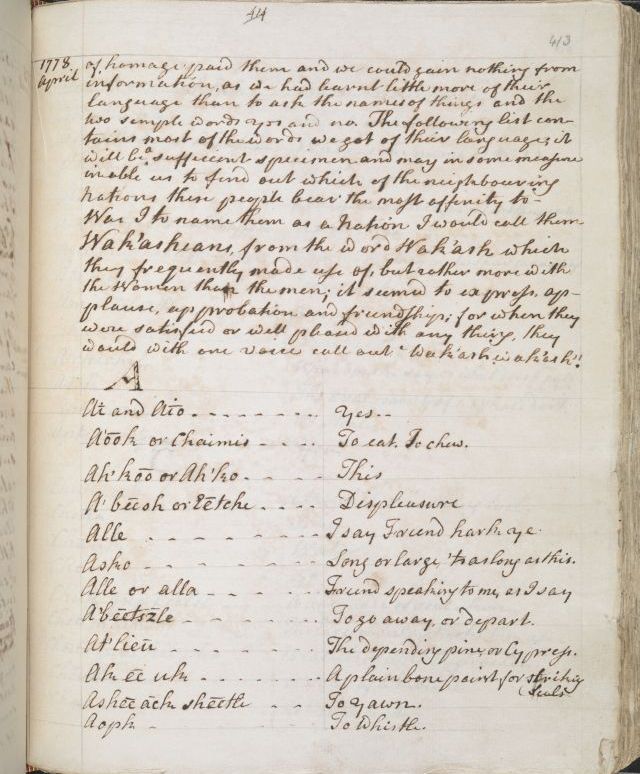 44
413
1778 April
of homage paid them and we could gain nothing from
information, as we had learnt little more of their
language than to ask the names of things and the
two simple words yes and no. The following list con-
tains most of the words we got of their language; it
will be a sufficient specimen and may in some measure
inable us to find out which of the neighbouring
Nations these people bear the most affinity to-
Was I to name them as a Nation I would call them
Wak'asheans, from the word Wak'ash which
they frequently made use of, but rather more with
the Women than the men; it seemed to express ap-
plause, approbation and friendship; for when they
were satisfied or well pleased with any thing, they
would with one voice call out Wak'ash wak'ash!
A
At and Aio - - - - - - - - Yes--
A'ōōk or Chaimis - - - - To eat. To chew.
Ah'kōō or Ah'ko - - - - - This
A'bēēsh or Eētche - - - - Displeasure
Alle - - - - - - - - - I say Friend hark ye
Asko - - - - - - - - - Long or large, 'tis as long as this.
Alle or alla - - - - - - Friend speaking to me, as I say
A'bēētszle - - - - - - - To go away, or depart.
At'lieu - - - - - - - - The depending pine, or Cypress.
Ak ēē uk - - - - - - - A plain bone point for striking
Seals
Ashēē āch shēētle - - - To Yawn.
Aoph - - - - - - - - - To Whistle.